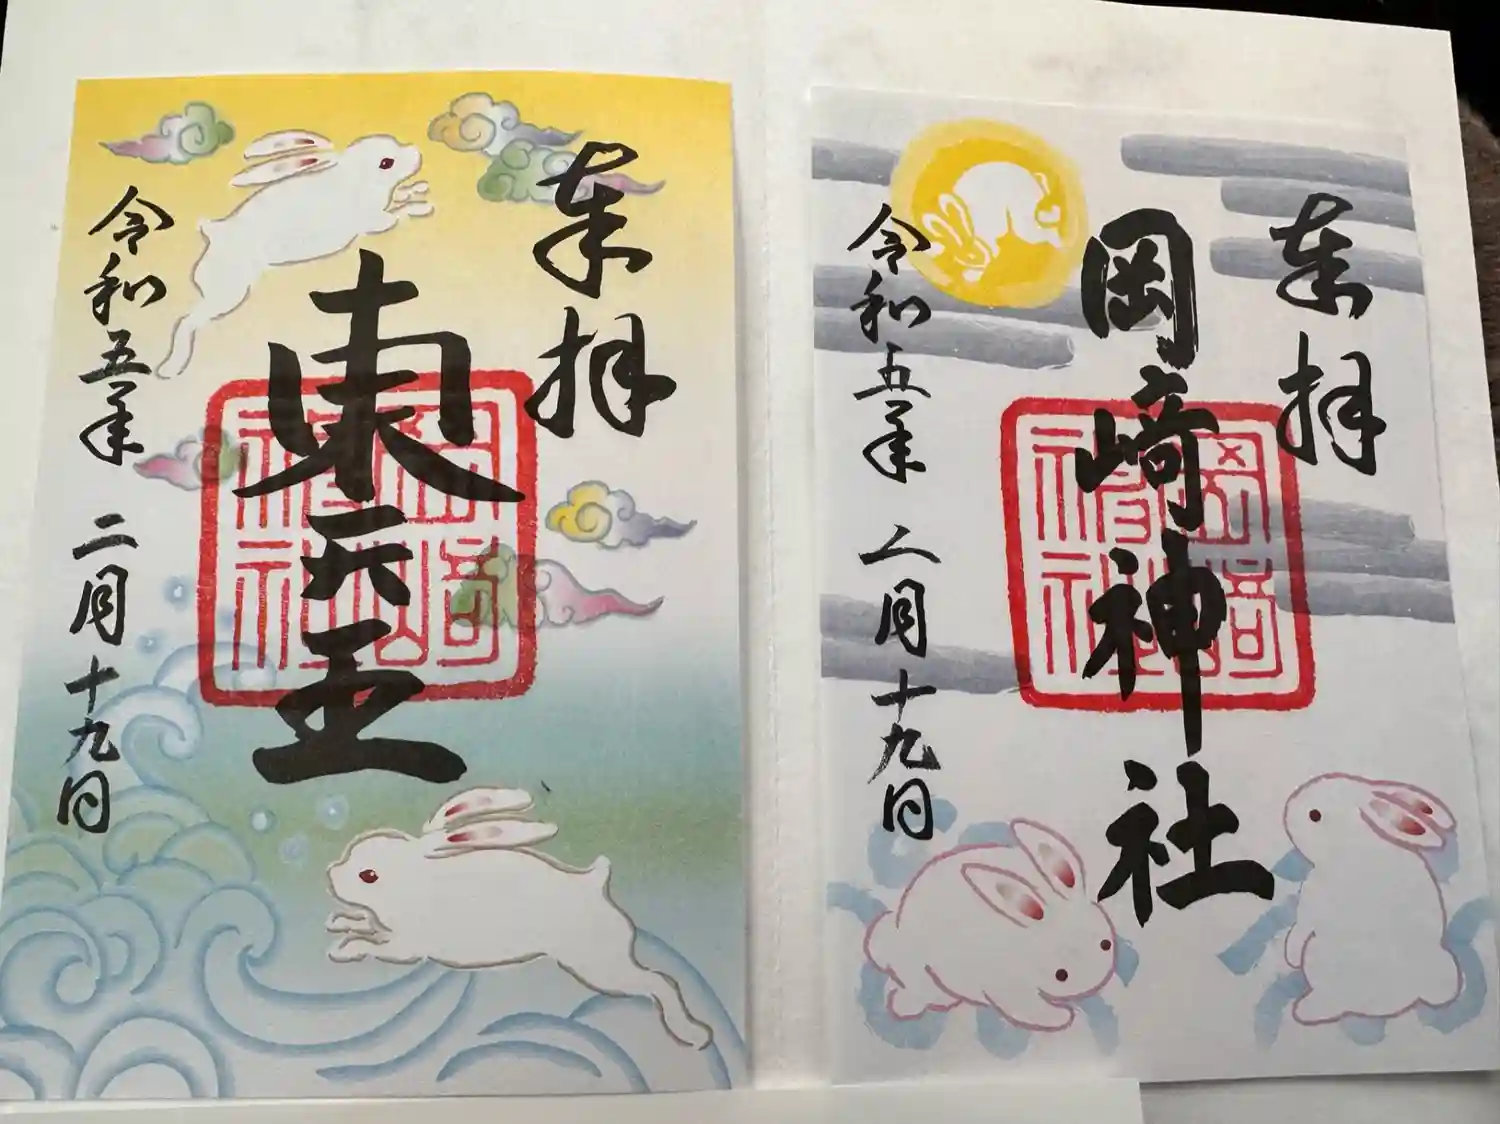 奉拝
岡崎神社
岡崎
神社
令和五年 二月十九日
奉拝
東天王
岡崎
神社
令和五年 二月十九日